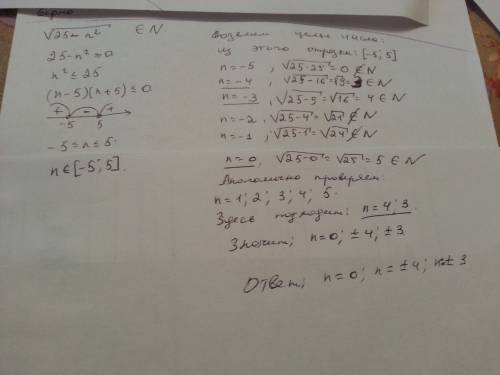 верно
√25 - n² ∈ N
25 - n² ≥ 0
n² ≤ 25
(n-5)(n+5) ≤ 0
+ - +
-5 5
-5 ≤ n ≤ 5
n ∈ [-5; 5]
Возьмем целые числа
из этого отрезка: [-5; 5]
n = -5, √25-25 = 0 ∉ N
n = -4, √25-16 = √9 = 3 ∈ N
n = -3, √25-9 = √16 = 4 ∈ N
n = -2, √25-4 = √21 ∉ N
n = -1, √25-1 = √24 ∉ N
n = 0, √25-0 = √25 = 5 ∈ N
Аналогично проверяем:
n = 1; 2; 3; 4; 5.
Здесь подходит: n = 4; 3.
Значит; n = 0; ±4; ±3
Ответ; n = 0; n = ±4; n = ±3